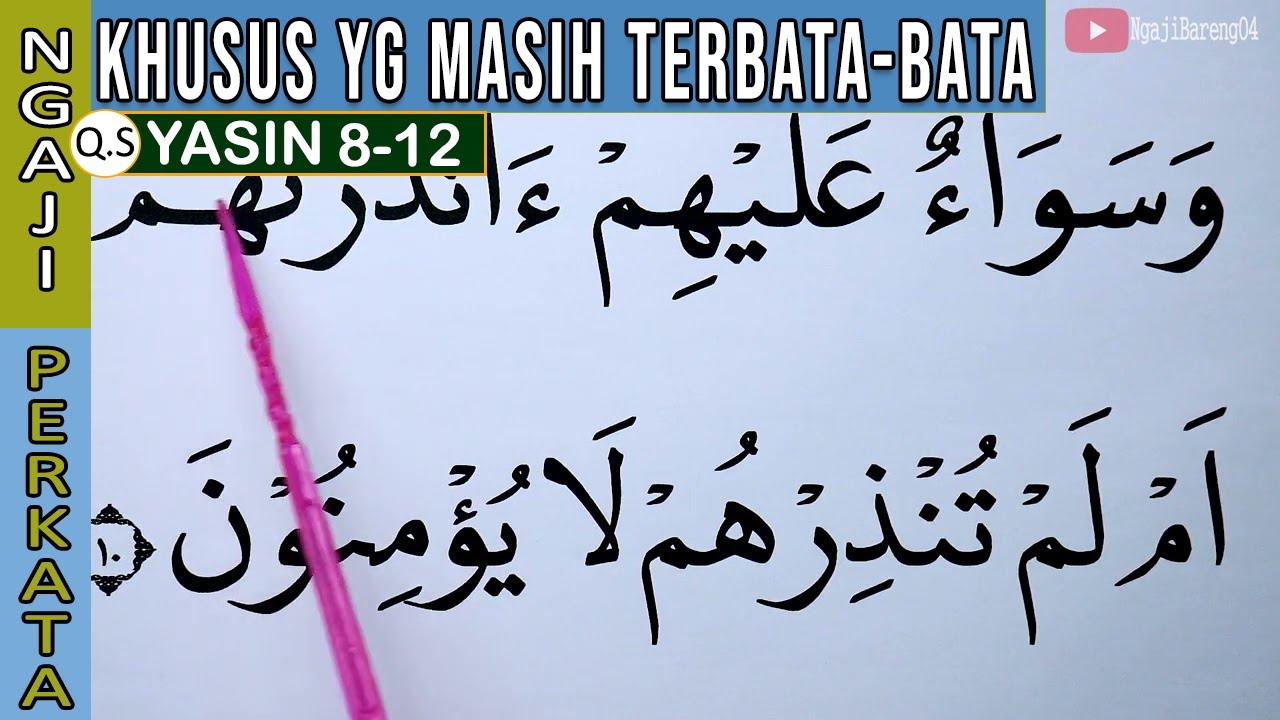 KHUSUS YG MASIH TERBATA-BATA
NgajiBareng04
Q.S YASIN 8-12
NGAJI
PERKATA
وَسَوَاۤءٌ عَلَيْهِمْ ءَاَنْذَرْتَهُمْ
اَمْ لَمْ تُنْذِرْهُمْ لَا يُؤْمِنُوْنَ ١٠